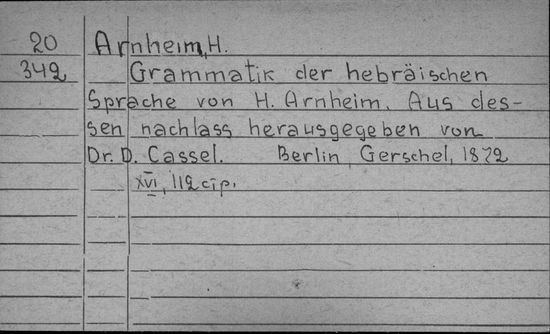 20 Arnheim, H.
342 Grammatik der hebräischen
Sprache von H. Arnheim. Aus des-
sen nachlass herausgegeben von
Dr. D. Cassel. Berlin, Gerschel, 1872
XVI, 112 стр.